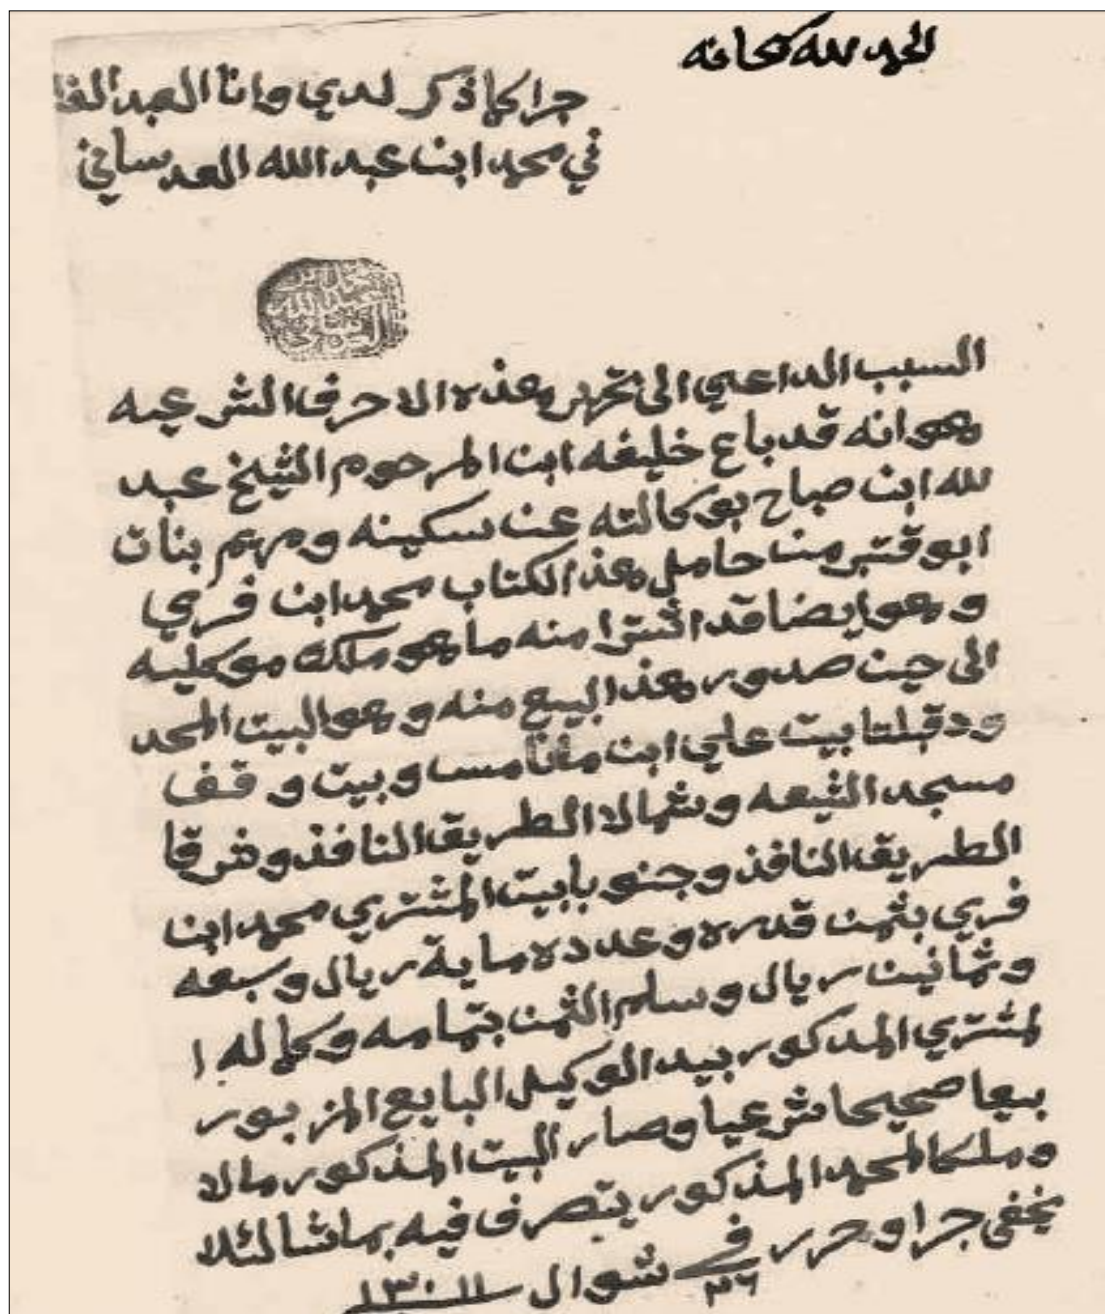 الحمد لله سبحانه
جرا كما ذكر لدي وانا العبد الفا
ني محمد ابن عبد الله العدساني
السبب الداعي الى تحرير هذه الاحرف الشرعيه
وهو انه قد باع خليفه ابن المرحوم الشيخ عبد
لله ابن صباح بوكالته عن سكينه ومريم بنات
ابو قتبر من حامل هذا الكتاب محمد ابن فري
وهو ايضا قد اشترا منه ما هو ملك موكليه
الى حين صدور هذ البيع منه وهو البيت المحد
ود قبلتا بيت علي ابن وبيت وقف
مسجد الشيعه وشمالا الطريق النافذ وشرقا
الطريق النافذ وجنوبا بيت المشتري محمد ابن
فري بثمن قدره وعدده ماية ريال وسبعه
وثمانين ريال وسلم الثمن بتمامه وكماله ا
لمشتري المذكور بيد الوكيل البايع المزبور
بيعا صحيحا شرعيا وصار البيت المذكور مالا
وملكا لمحمد المذكور يتصرف فيه بما شا لئلا
يخفى جرا وحرر في ٢٦ شوال سـ ١٣٠١١ـنة